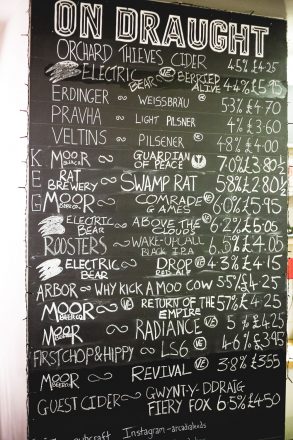 ON DRAUGHT
ORCHARD THIEVES CIDER 4.5% £4.25
ELECTRIC BEAR VE BERRIED ALIVE 4.4% £5.95
ERDINGER ∞ WEISSBRÄU 5.3% £4.70
PRAVHA ∞ LIGHT PILSNER 4% £3.60
VELTINS ∞ PILSENER VE 4.8% £4.00
KEG
MOOR BEER CO. GUARDIAN OF PEACE 7.0% £3.80 ½
RAT BREWERY ∞ SWAMP RAT 5.8% £2.80 ½
MOOR BEER CO. ∞ COMRADE GAMES VE 6.0% £5.95
ELECTRIC BEAR ∞ ABOVE THE CLOUDS VE 6.2% £5.05
ROOSTERS ∞ WAKE-UP CALL BLACK I.P.A. 6.5% £4.05
ELECTRIC BEAR ∞ DROP VE 4.3% £4.15
ARBOR ∞ WHY KICK A MOO COW VE 5.5% £4.25
MOOR BEER CO. VE RETURN OF THE EMPIRE 5.7% £4.25
MOOR BEER CO. ∞ RADIANCE VE 5% £3.95
FIRST CHOP & HIPPY ∞ LS6 VE 4.6% £3.95
MOOR BEER CO. ∞ REVIVAL VE 3.8% £3.55
GUEST CIDER ∞ GWYNT-Y-DDRAIG FIERY FOX 6.5% £4.50
Instagram -arcadialeeds